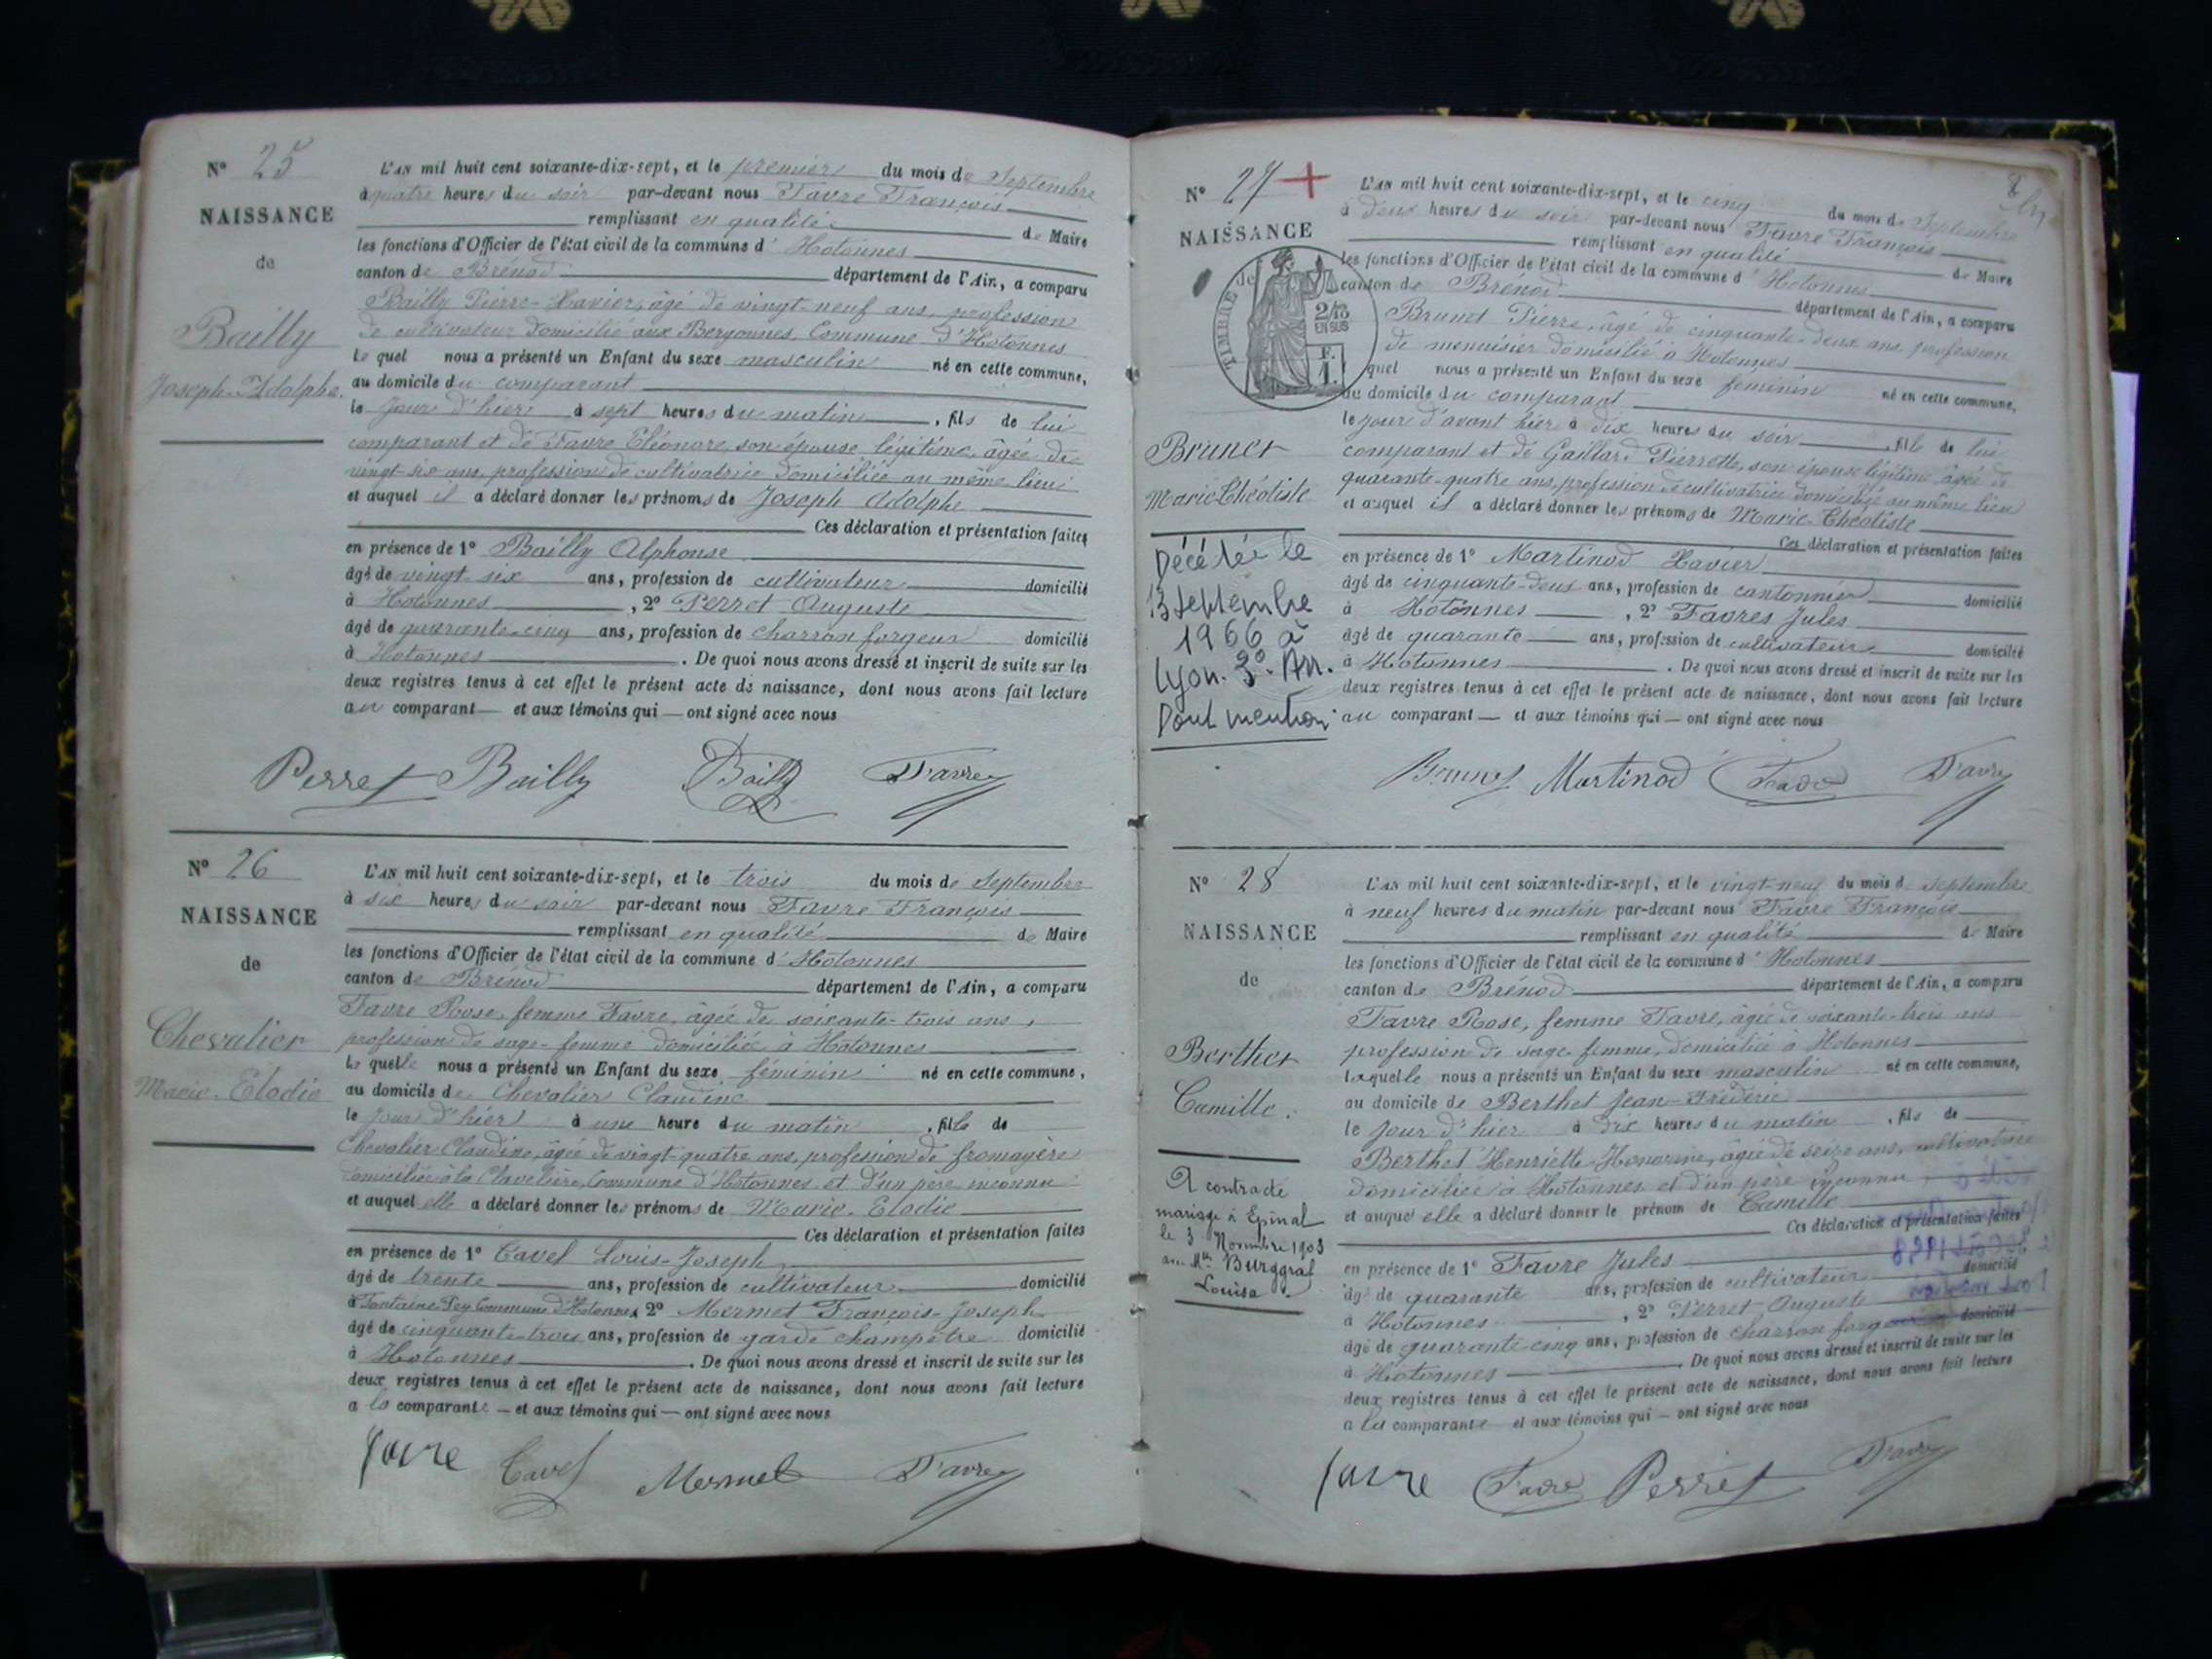 N° 25
NAISSANCE
de
Bailly
Joseph-Adolphe.
L'AN mil huit cent soixante-dix-sept, et le premier du mois de Septembre
à quatre heures du soir par-devant nous Favre François
remplissant en qualité de Maire
les fonctions d'Officier de l'état civil de la commune d'Hotonnes
canton de Brénod département de l'Ain, a comparu
Bailly Pierre-Xavier, âgé de vingt-neuf ans, profession
de cultivateur domicilié aux Bergonnes, Commune d'Hotonnes
Le quel nous a présenté un Enfant du sexe masculin né en cette commune,
au domicile du comparant
le jour d'hier à sept heures du matin, fils de lui
comparant et de Favre Eléonore, son épouse légitime, âgée de
vingt-six ans, profession de cultivatrice domiciliée au même lieu
et auquel il a déclaré donner les prénoms de Joseph Adolphe
Ces déclaration et présentation faites
en présence de 1° Bailly Alphonse
âgé de vingt-six ans, profession de cultivateur domicilié
à Hotonnes, 2° Perret Auguste
âgé de quarante-cinq ans, profession de charron forgeur domicilié
à Hotonnes. De quoi nous avons dressé et inscrit de suite sur les
deux registres tenus à cet effet le présent acte de naissance, dont nous avons fait lecture
au comparant et aux témoins qui ont signé avec nous
Perret Bailly Bailly Favre
N° 26
NAISSANCE
de
Chevalier
Marie-Elodie
L'AN mil huit cent soixante-dix-sept, et le trois du mois de Septembre
à six heures du soir par-devant nous Favre François
remplissant en qualité de Maire
les fonctions d'Officier de l'état civil de la commune d'Hotonnes
canton de Brénod département de l'Ain, a comparu
Favre Rose, femme Favre, âgée de soixante-trois ans,
profession de sage-femme domiciliée à Hotonnes
La quelle nous a présenté un Enfant du sexe féminin né en cette commune,
au domicile de Chevalier Claudine
le jour d'hier à une heure du matin, fille de
Chevalier Claudine, âgée de vingt-quatre ans, profession de fromagère
domiciliée à la Clavelière, Commune d'Hotonnes et d'un père inconnu
et auquel elle a déclaré donner les prénoms de Marie-Elodie
Ces déclaration et présentation faites
en présence de 1° Cavel Louis-Joseph
âgé de trente ans, profession de cultivateur domicilié
à Fontaine-Pey Commune d'Hotonnes, 2° Mermet François-Joseph
âgé de cinquante-trois ans, profession de garde champêtre domicilié
à Hotonnes. De quoi nous avons dressé et inscrit de suite sur les
deux registres tenus à cet effet le présent acte de naissance, dont nous avons fait lecture
a la comparante — et aux témoins qui — ont signé avec nous
favre Cavel Mermet Favre
N° 27 +
NAISSANCE
de
TIMBRE
2/10
EN SUS
F.
1.
Brunet
Marie-Théotiste
Décédée le
13 septembre
1966 à
Lyon. 3°. Arr.
Dont mention
L'AN mil huit cent soixante-dix-sept, et le cinq du mois de Septembre
à deux heures du soir par-devant nous Favre François
remplissant en qualité de Maire
les fonctions d'Officier de l'état civil de la commune d'Hotonnes
canton de Brénod département de l'Ain, a comparu
Brunet Pierre, âgé de cinquante-deux ans, profession
de menuisier domicilié à Hotonnes
quel nous a présenté un Enfant du sexe féminin né en cette commune,
au domicile du comparant
le jour d'avant hier à dix heures du soir, fille de lui
comparant et de Gaillard Pierrette, son épouse légitime, âgée de
quarante-quatre ans, profession de cultivatrice domiciliée au même lieu
et auquel il a déclaré donner les prénoms de Marie-Théotiste
Ces déclaration et présentation faites
en présence de 1° Martinod Xavier
âgé de cinquante-deux ans, profession de cantonnier domicilié
à Hotonnes, 2° Favres Jules
âgé de quarante ans, profession de cultivateur domicilié
à Hotonnes. De quoi nous avons dressé et inscrit de suite sur les
deux registres tenus à cet effet le présent acte de naissance, dont nous avons fait lecture
au comparant — et aux témoins qui — ont signé avec nous
Brunet Martinod Favre Favre
N° 28
NAISSANCE
de
Berthet
Camille.
A contracté
mariage à Epinal
le 3 Novembre 1903
avec Mlle Burggraf
Louisa.
L'AN mil huit cent soixante-dix-sept, et le vingt-neuf du mois de Septembre
à neuf heures du matin par-devant nous Favre François
remplissant en qualité de Maire
les fonctions d'Officier de l'état civil de la commune d'Hotonnes
canton de Brénod département de l'Ain, a comparu
Favre Rose, femme Favre, âgée de soixante-trois ans
profession de sage-femme, domiciliée à Hotonnes
laquelle nous a présenté un Enfant du sexe masculin né en cette commune,
au domicile de Berthet Jean-Frédéric
le jour d'hier à dix heures du matin, fils de
Berthet Henriette-Honorine, âgée de seize ans, cultivatrice
domiciliée à Hotonnes et d'un père inconnu
et auquel elle a déclaré donner le prénom de Camille
Ces déclaration et présentation faites
en présence de 1° Favre Jules
âgé de quarante ans, profession de cultivateur domicilié
à Hotonnes, 2° Perret Auguste
âgé de quarante-cinq ans, profession de charron forgeur domicilié
à Hotonnes. De quoi nous avons dressé et inscrit de suite sur les
deux registres tenus à cet effet le présent acte de naissance, dont nous avons fait lecture
a la comparante et aux témoins qui — ont signé avec nous
favre Favre Perret Favre